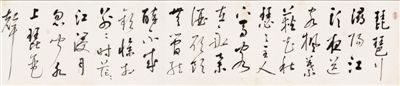 琵琶行
潯陽江
頭夜送
客楓葉
荻花秋
瑟瑟主人
下馬客
在船舉
酒欲飲
無管絃
醉不成
歡慘將
別別時茫
江浸月
忽聞水
上琵琶
聲